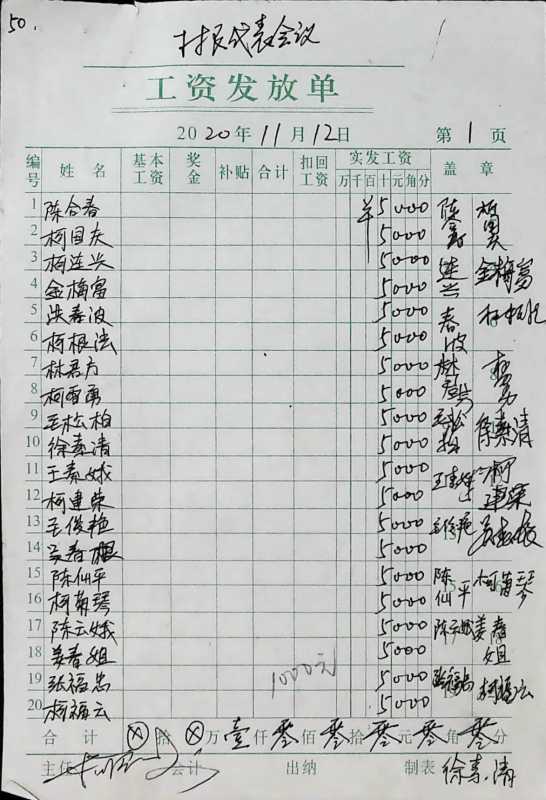 50.
村民代表会议
工资发放单
2020年11月12日 第1页
编号 姓名 基本工资 奖金 补贴 合计 扣回工资 实发工资 盖章
万 千 百 十 元 角 分
1 陈合春 5000 陈
2 柯国庆 5000
3 柯连兴 5000 连兴
4 金梅富 5000 金梅富
5 洪春波 5000 春波
6 柯根法 5000
7 林君方 5000
8 柯雪勇 5000
9 王松柏 5000
10 徐素清 5000 徐素清
11 王素娥 5000 王素娥
12 柯建荣 5000 柯建荣
13 王俊艳 5000 王俊艳
14 吴春根 5000
15 陈仙平 5000 陈仙平
16 柯菊琴 5000 柯菊琴
17 陈云娥 5000 陈云娥
18 姜春姐 5000 姜春姐
19 张福忠 5000 张福忠
20 柯福云 5000 柯福云
1000元
合计 ⊗拾⊗万壹仟零佰零拾零元零角零分
主任 会计 出纳 制表 徐素清